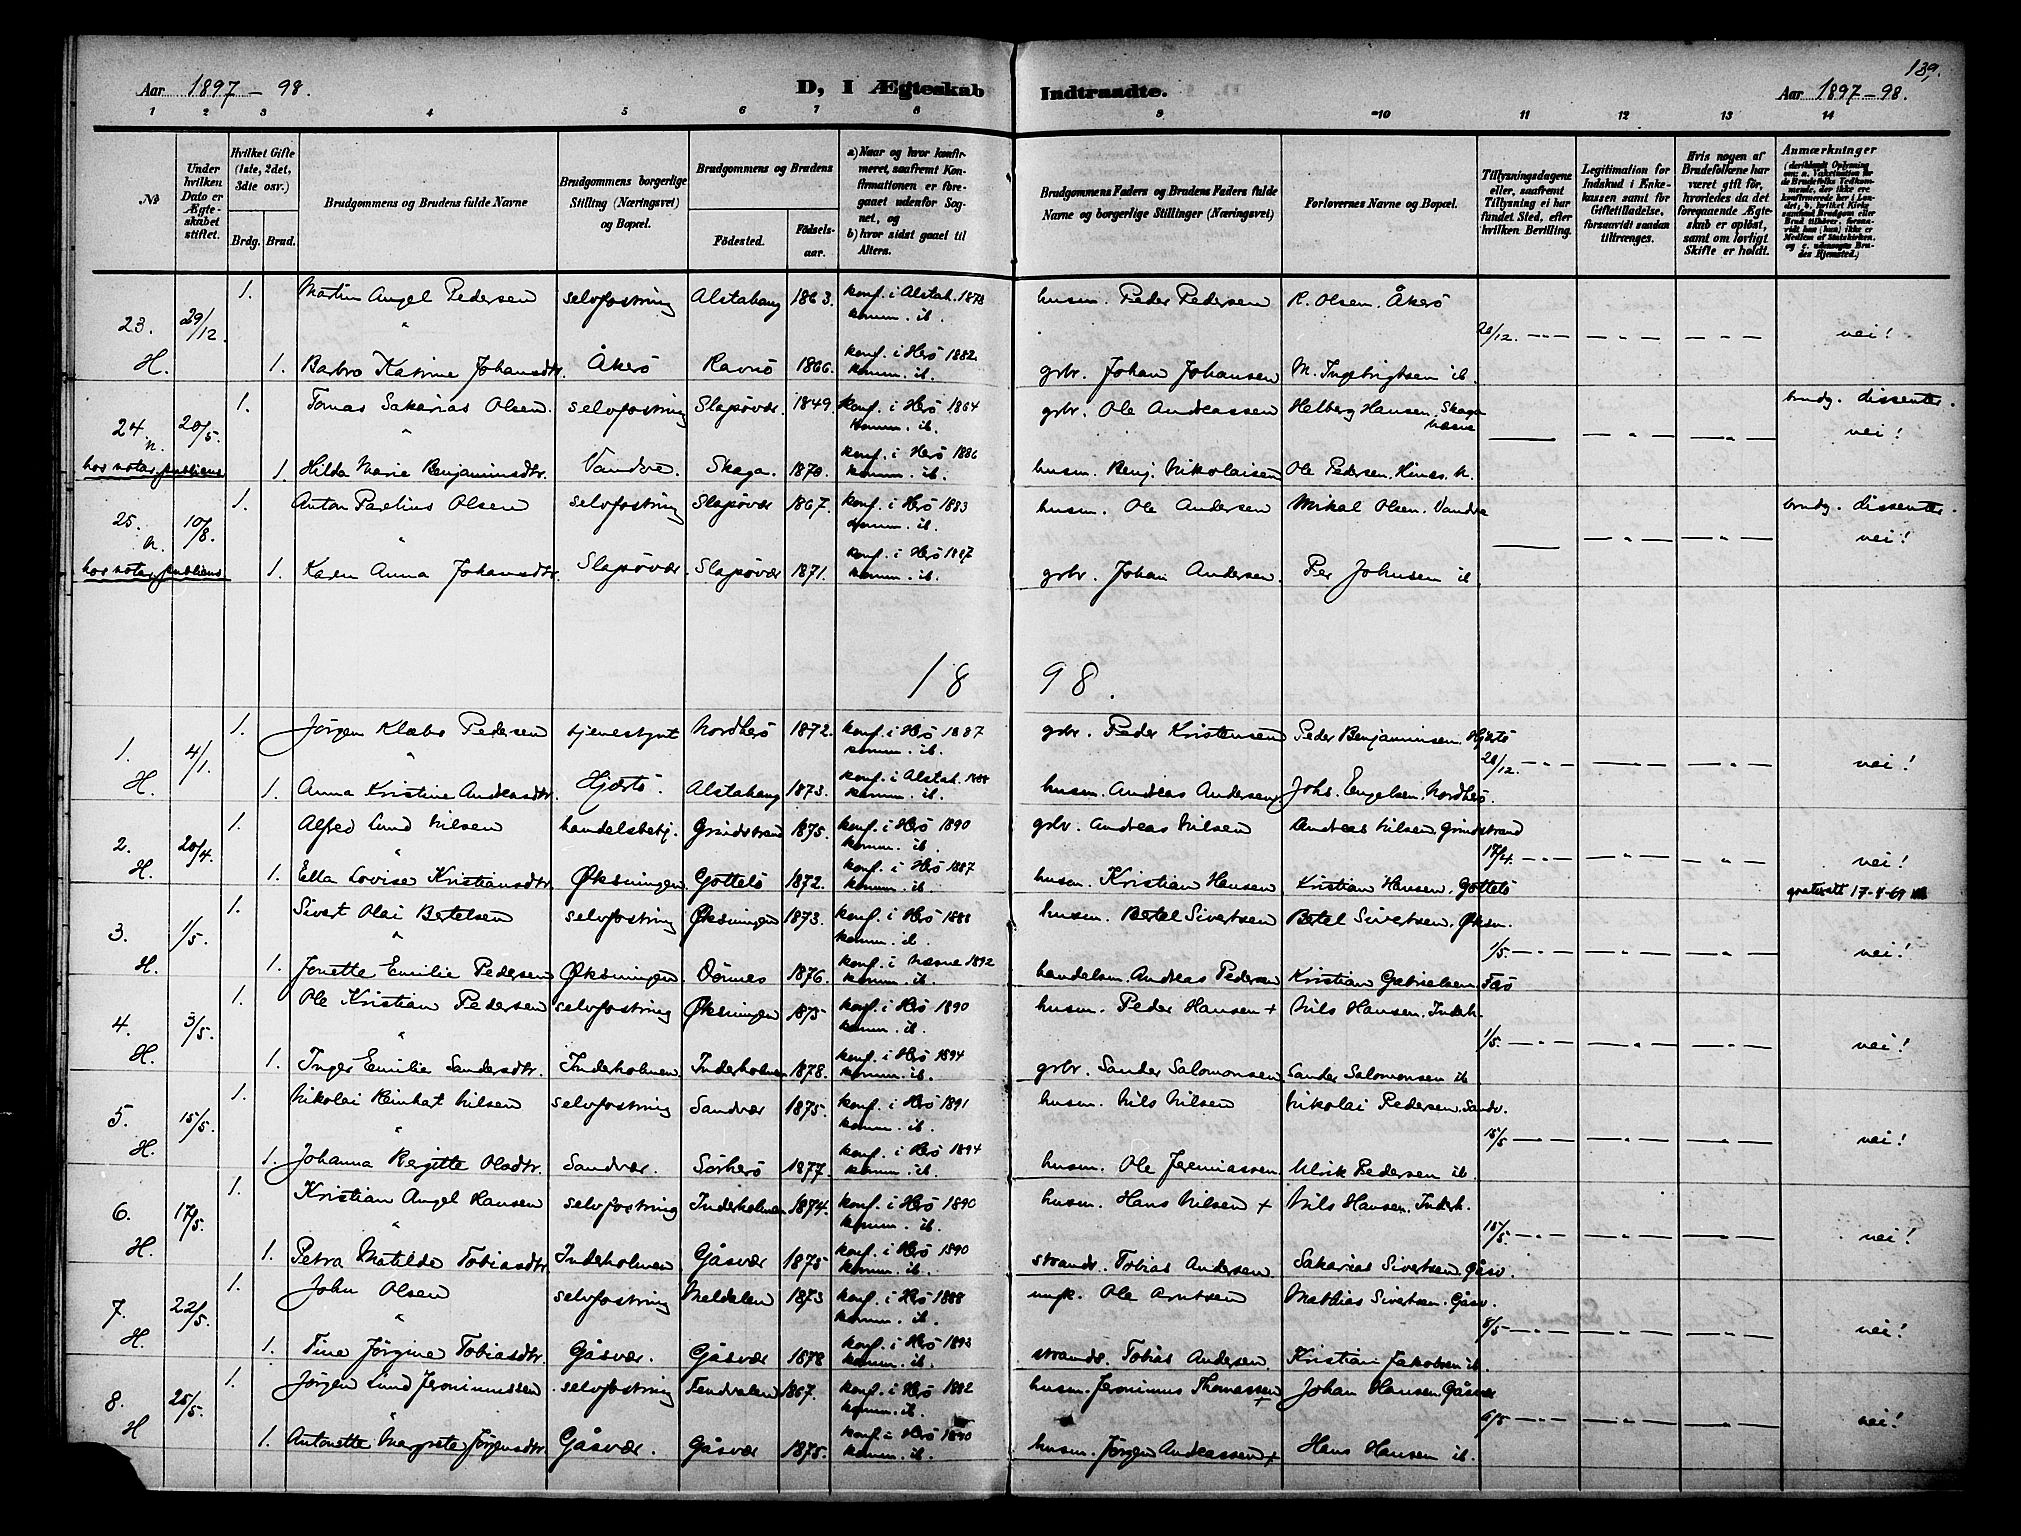 139.
Aar 1897 – 98. D, I Ægteskab Indtraadte. Aar 1897 – 98.
1 2 3 4 5 6 7 8 9 10 11 12 13 14
№
Under hvilken Dato er Ægteskabet stiftet.
Hvilket Gifte (1ste, 2det, 3die osv.)
Brdg. Brud.
Brudgommens og Brudens fulde Navne
Brudgommens borgerlige Stilling (Næringsvei) og Bopæl.
Brudgommens og Brudens
Fødested. Fødselsaar.
a) Naar og hvor konfirmeret, saafremt Konfirmationen er foregaaet udenfor Sognet, og
b) hvor sidst gaaet til Alters.
Brudgommens Faders og Brudens Faders fulde Navne og borgerlige Stillinger (Næringsvei)
Forlovernes Navne og Bopæl.
Tillysningsdagene eller, saafremt Tillysning ei har fundet Sted, efter hvilken Bevilling.
Legitimation for Indskud i Ænkekassen samt for Giftetilladelse, forsaavidt saadan tiltrænges.
Hvis nogen af Brudefolkene har været gift før, hvorledes da det foregaaende Ægteskab er opløst, samt om lovligt Skifte er holdt.
Anmærkninger
1. Martin Angel Pedersen selvfostring Alstahaug 1863. konf. i Alstah. 1878 husm. Peder Pedersen R. Olsen. Åkerö
23. 29/12 " komm. ib. 20/12. — " — — " — — " — nei!
H. 1. Barbro Katrine Johansdtr. Åkerö Ravnö 1866. konf. i Herö 1882 komm. ib. grbr. Johan Johansen M. Ingebrigtsen ib.
1. Tomas Sakarias Olsen. selvfostring Slapövær 1849. konf. i Herö 1864 grbr. Ole Andreassen Helberg Hansen. Skaga brudg. dissenter.
24. n. 20/5. " komm. ib. Næsne — — " — — " — nei!
hos notar. publicus 1. Hilda Marie Benjaminsdtr. Vandve. Skaga. 1870. konf. i Herö 1886 komm. ib. husm. Benj. Nikolaisen Ole Pedersen.
1. Anton Parelius Olsen selvfostring Slapövær 1867. konf. i Herö 1883 husm. Ole Andersen Mikal Olsen. Vandve brudg. dissenter.
25. n. 10/8. " komm. ib. — — " — — " — nei!
hos notar. publicus 1. Karen Anna Johansdtr. Slapövær. Slapövær 1871. konf. i Herö 1887 komm. ib. grbr. Johan Andersen. Per Johnsen ib
18 98.
1. Jörgen Klæbo Pedersen tjenestgut Nordherö 1872. konf. i Herö 1887 grbr. Peder Kristensen Peder Benjaminsen. Hjärtö
1. 4/1. " komm. ib. 26/12. — " — — " — — " — nei!
H. 1. Anna Kristine Andreasdtr. Hjärtö. Alstahaug 1873. konf. i Alstah. 1888 komm. ib. husm. Andreas Andersen Johs. Engelsen. Nordherö.
1. Alfred Lund Nilsen handelsbetj. Grindstrand 1875. konf. i Herö 1890 grbr. Andreas Nilsen Andreas Nilsen. Grindstrand
2. 20/4. " komm. ib. 17/4. — " — — " — — " — nei!
H. 1. Ella Lovise Kristiansdtr. Øksningen. Gåttelö 1872. konf. i Herö 1887 komm. ib. husm. Kristian Hansen Kristian Hansen. Gåttelö
1. Sivert Olai Bertelsen selvfostring Øksningen 1873. konf. i Herö 1888 husm. Bertel Sivertsen Bertel Sivertsen. Øksn.
3. 1/5. " komm. ib. 1/5. — " — — " — — " — nei!
H. 1. Jonette Emilie Pedersen Øksningen. Dönnes 1876. konf. i Næsne 1892 komm. ib. handelsm. Andreas Pedersen Kristian Gabrielsen.
1. Ole Kristian Pedersen selvfostring Øksningen 1875 konf. i Herö 1890 husm. Peder Hansen + Nils Hansen. Inderh.
4. 3/5. " komm. ib. 1/5. — " — — " — — " — nei!
H. 1. Inger Emilie Sandersdtr. Inderholmen. Inderholmen 1878. konf. i Herö 1894 komm. ib. grbr. Sander Salomonsen. Sander Salomonsen ib
1. Nikolai Reinhart Nilsen selvfostring Sandvær 1875. konf. i Herö 1891 husm. Nils Nilsen Nikolai Pedersen. Sandv.
5. 15/5. " komm. ib. 15/5 — " — — " — — " — nei!
H. 1. Johanna Bergitte Olsdtr. Sandvær. Sörherö 1877. konf. i Herö 1894 komm. ib. husm. Ole Jeremiassen Ulrik Pedersen ib.
1. Kristian Angel Hansen selvfostring Inderholmen 1874. konf. i Herö 1890 husm. Hans Nilsen + Nils Hansen. Inderh.
6. 17/5. " komm. ib. 15/5. — " — — " — — " — nei!
H. 1. Petra Matilde Tobiasdtr. Inderholmen Gåsvær 1875 konf. i Herö 1890 komm. ib. strands. Tobias Andersen. Sakarias Sivertsen. Gåsv.
1. John Olsen selvfostring Meldalen 1873 konf. i Herö 1888 ungk. Ole Arntsen Mathias Sivertsen. Gåsv.
7. 22/5. " komm. ib. 8/5 — " — — " — — " — nei!
H. 1. Tine Jörgine Tobiasdtr. Gåsvær. Gåsvær 1878 konf. i Herö 1893 komm. ib. strands. Tobias Andersen. Kristian Jakobsen ib.
1. Jörgen Lund Jeronimussen selvfostring 1867. konf. i Herö 1882 husm. Jeronimus Thomassen + Johan Hansen. Gåsvær
8. 25/5. " komm. ib. 6/5 — " — — " — — " — nei!
H 1. Antonette Margrete Jörgensdtr. Gåsvær. Gåsvær 1875. konf. i Herö 1890 komm. ib. husm. Jörgen Andreassen + Hans Hansen ib.